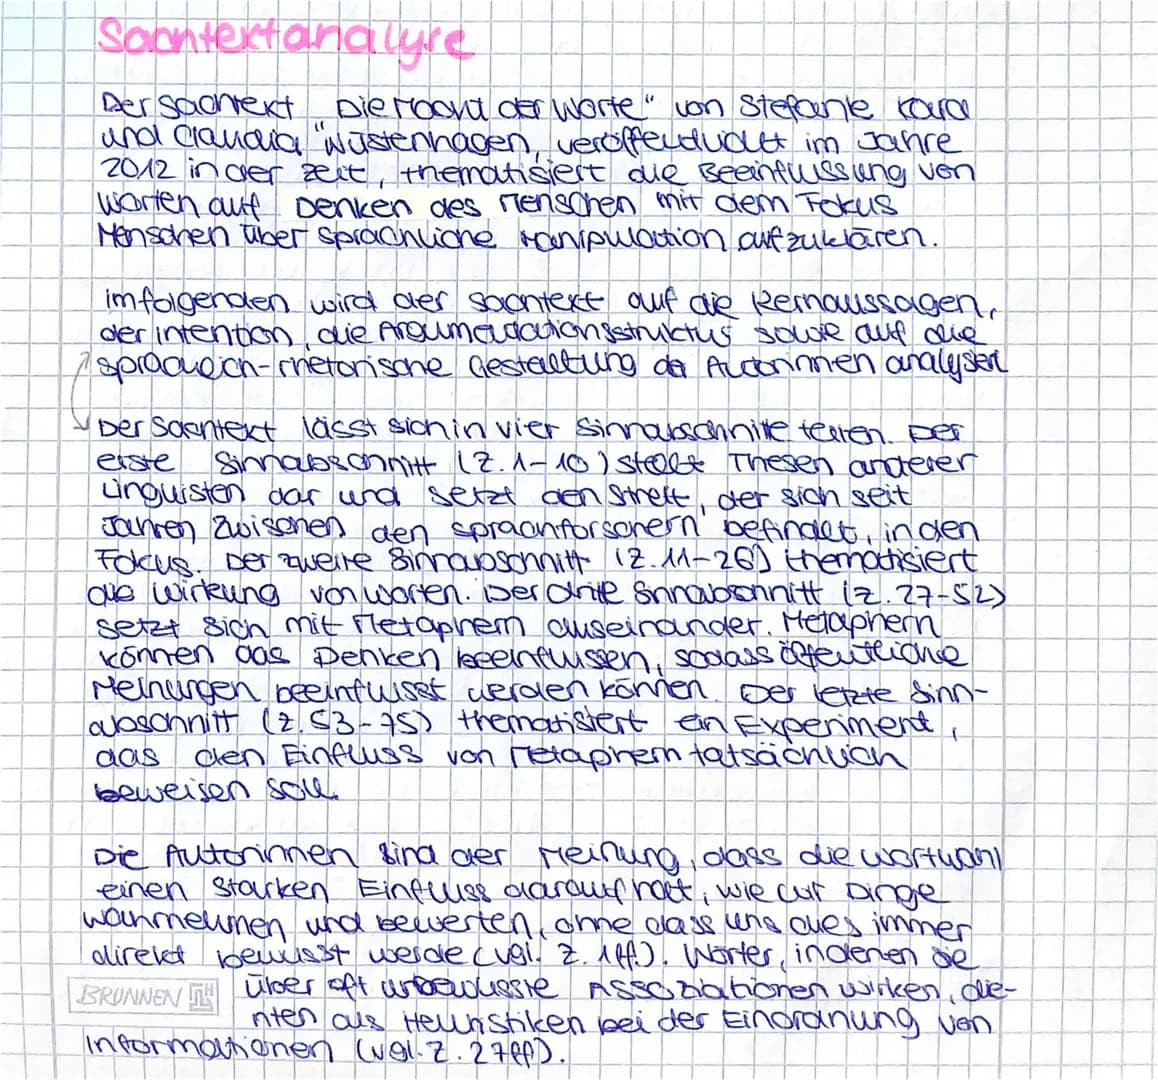 Sachtextanalyse
Der Sachtext "Die Macht der Worte" von Stefanie Kara
und Claudia Wüstenhagen, veröffentlicht im Jahre
2012 in der Zeit, thematisiert die Beeinflussung von
Worten auf Denken des Menschen mit dem Fokus
Menschen über sprachliche Manipulation aufzuklären.
im folgenden wird der Sachtext auf die Kernaussagen,
der Intention, die Argumentationsstruktur sowie auf die
sprachlich-rhetorische Gestaltung der Autorinnen analysiert
Der Sachtext lässt sich in vier Sinnabschnitte teilen. Der
erste Sinnabschnitt (Z.1-10) stellt Thesen anderer
Linguisten dar und setzt den Streit, der sich seit
Jahren zwischen den Sprachforschern befindet, in den
Fokus. Der zweite Sinnabschnitt (Z.11-26) thematisiert
die Wirkung von Worten. Der dritte Sinnabschnitt (Z.27-52)
setzt sich mit Metaphern auseinander. Metaphern
können das Denken beeinflussen, sodass öffentliche
Meinungen beeinflusst werden können. Der letzte Sinn-
abschnitt (Z.53-75) thematisiert ein Experiment,
das den Einfluss von Metaphern tatsächlich
beweisen soll.
Die Autorinnen sind der Meinung, dass die Wortwahl
einen starken Einfluss darauf hat, wie wir Dinge
wahrnehmen und bewerten, ohne dass uns dies immer
direkt bewusst werde (vgl. Z. 1ff.). Wörter, in denen sie
über oft unbewusste Assoziationen wirken, die-
BRUNNEN
nten als Heuristiken bei der Einordnung von
Informationen (vgl. Z. 27ff).